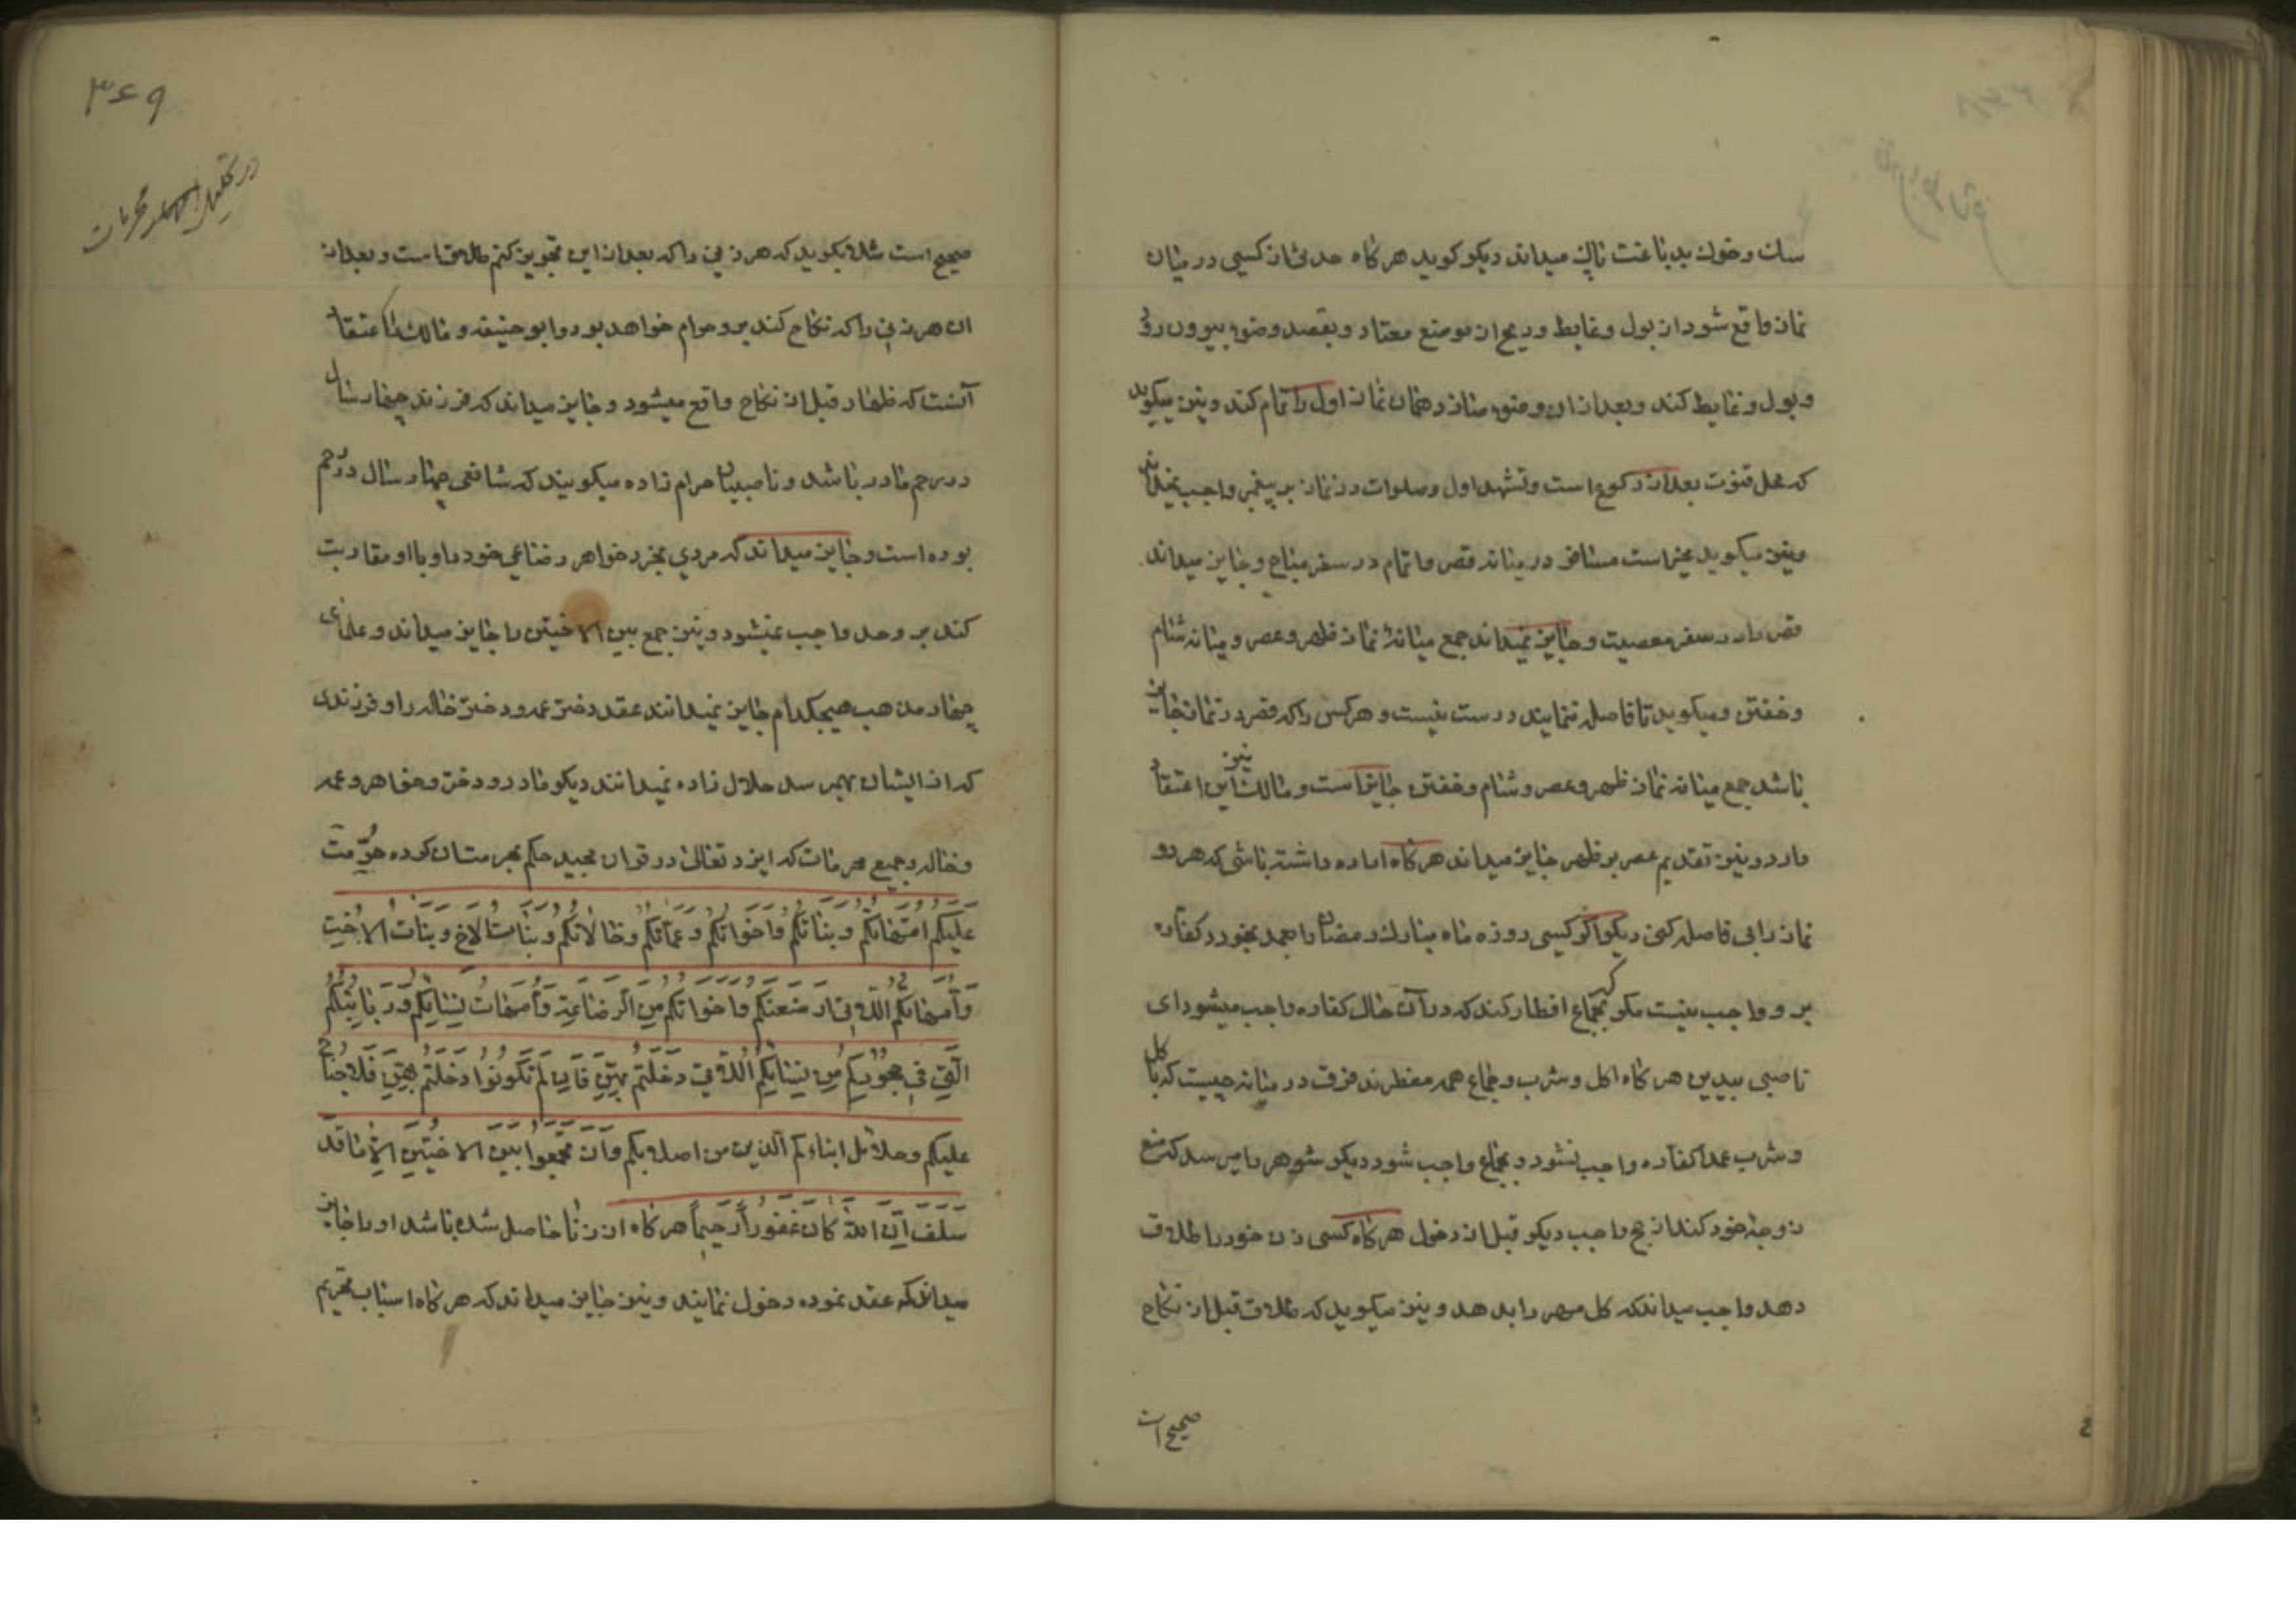 سک و خوک بدباغت پاک میداند دیکر کوید هر کاه حدثی از کسی در میان
نماز واقع شود از بول و غایط و ریح از موضع معتاد و بقصد وضو بیرون رود
و بول و غایط کند و بعد از ان وضو سازد همان نماز اول را تمام کند و نیز میکوید
که محل قنوت بعد از رکوع است و تشهد اول و صلوات در نماز بر پیغمبر واجب نمیداند
و نیز میکوید مخیر است مسافر در میانه قصر و اتمام در سفر مباح و جایز میداند
قصر را در سفر معصیت و جایز نمیداند جمع میانهٔ نماز ظهر و عصر و میانه شام
و خفتن و میکوید تا فاصله ننمایند درست نیست و هر کس را که قصر در نماز جایز
باشد جمع میانه نماز ظهر و عصر و شام و خفتن جایز است و مالک نیز این اعتقاد
دارد و نیز تقدیم عصر بر ظهر جایز میداند هر کاه اراده داشته باشی که هر دو
نماز را بی فاصله کنی دیکر اکر کسی روزه ماه مبارک رمضان را بعمد بخورد کفاره
بر و واجب نیست مکر که بجماع افطار کند که در آن حال کفاره واجب میشود ای
ناصبی بیدین هر کاه اکل و شرب و جماع همه مفطرند فرق در میانه چیست که باکل
و شرب عمدا کفاره واجب نشود و بجماع واجب شود دیکر شوهر را میرسد که منع
زوجه خود کند از حج واجب دیکر قبل از دخول هر کاه کسی زن خود را طلاق
دهد واجب میداند که کل مهر را بدهد و نیز میکوید که طلاق قبل از نکاح
صحیح است
۳۶۹
در تحلیل محرمات
صحیح است مثلا بکوید که هر زنی را که بعد از این تجویز کنم طلاق است و بعد از
ان هر زنی را که نکاح کند بر و حرام خواهد بود و ابو حنیفه و مالک را اعتقاد
آنست که ظهار قبل از نکاح واقع میشود و جایز میداند که فرزند چهار سال
در رحم مادر باشد و ناصبیان حرام زاده میکویند که شافعی چهار سال در رحم
بوده است و جایز میداند که مردی بخرد خواهر رضاعی خود را و با او مقاربت
کند بر و حد واجب نمیشود و نیز جمع بین الاختین را جایز میداند و علمای
چهار مذهب هیچکدام جایز نمیدانند عقد دختر عمه و دختر خاله را و فرزندی
که از ایشان بهم رسد حلال زاده نمیدانند دیکر مادر و دختر و خواهر و عمه
و خاله و جمیع محرمات که ایزد تعالی در قران مجید حکم بحرمتشان کرده حُرِّمت
علیکم امّهاتکم و بناتکم واخواتکم و عمّاتکم وخالاتکم وبنات الاخ وبنات الاخت
وَاُمّهاتکم اللّاتی ارضعنکم واخواتکم مِنَ الرضاعة وَاُمهات نِسائکم وَرَبائبکم
الّتی فی حجورکم مِن نِسائکم اللّاتی دخلتم بهنّ فان لم تکونوا دَخلتم بِهِنّ فلا جناح
علیکم وحلائل ابناءکم الذین من اصلابکم وَاَن تجمعوا بین الاختین الاّ ما قد
سلف اِنّ اللهَ کانَ غفوراً رحیماً هر کاه از زنا حاصل شده باشد او را جایز
میداند که عقد نموده دخول نمایند و نیز جایز میداند که هر کاه اسباب تحریم